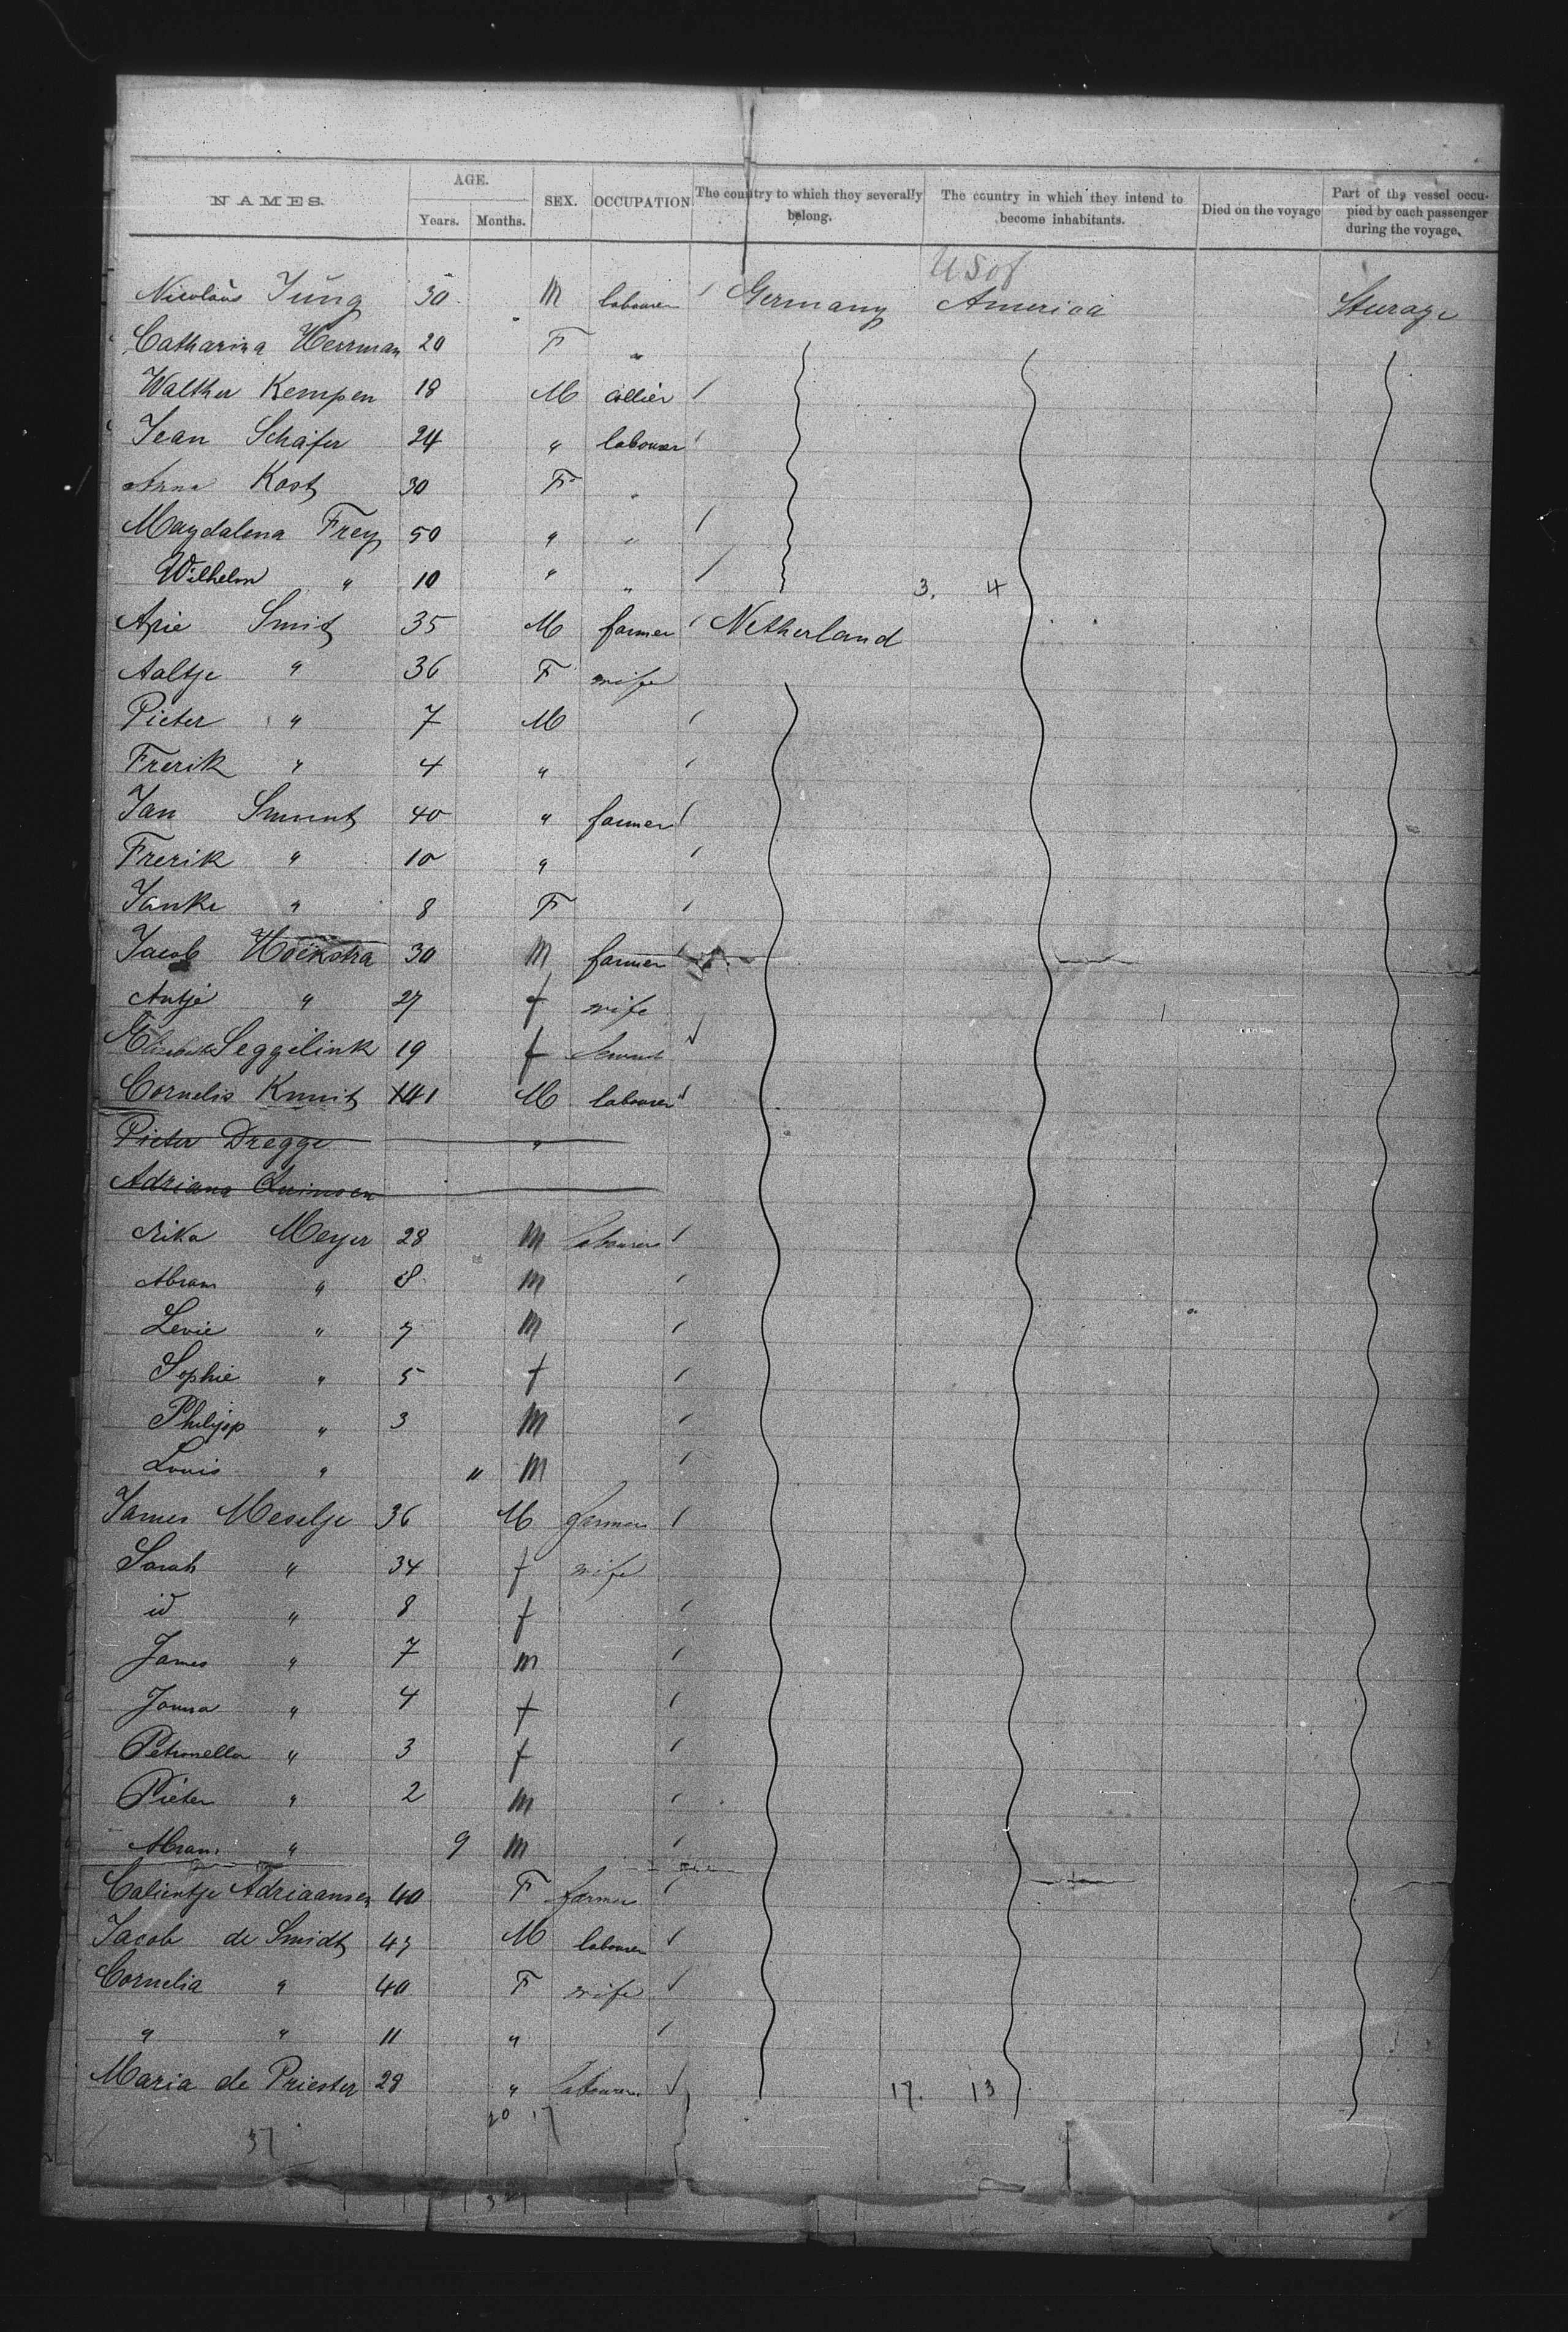 NAMES. AGE. SEX. OCCUPATION. The country to which they severally belong. The country in which they intend to become inhabitants. Died on the voyage Part of the vessel occupied by each passenger during the voyage.
Years. Months.
US of
Nicolaus Jung 30 M labourer / Germany America Steerage
Catharina Herrman 20 F "
Walther Kempen 18 M collier /
Jean Schäfer 24 " labourer /
Anna Kost 30 F "
Magdalena Frey 50 " " /
Wilhelm " 10 " " / 3. 4
Arie Smit 35 M farmer / Netherland
Aaltje " 36 F wife
Pieter " 7 M /
Frerik " 4 " /
Jan Smunt 40 " farmer /
Frerik " 10 " /
Janke " 8 F /
Jacob Hoekstra 30 M farmer /
Antje " 27 f wife
Elisabeth Seggelink 19 f servant
Cornelis Kmuit 41 M labourer
Pieter Dregge "
Adriana
Rika Meyer 28 M labourer /
Abram " 8 M /
Levie " 7 M /
Sophie " 5 f /
Philipp " 3 M /
Louis " 11 M /
James Meselje 36 M farmer /
Sarah " 34 f wife
id " 8 f /
James " 7 m /
Janna " 4 f /
Petronella " 3 f /
Pieter " 2 m /
Abram " 9 m /
Calientje Adriaansen 40 F farmer /
Jacob de Smidt 47 M labourer /
Cornelia " 40 F wife /
" " 11 " /
Maria de Priester 28 " labourer / 17. 13
20 17
37